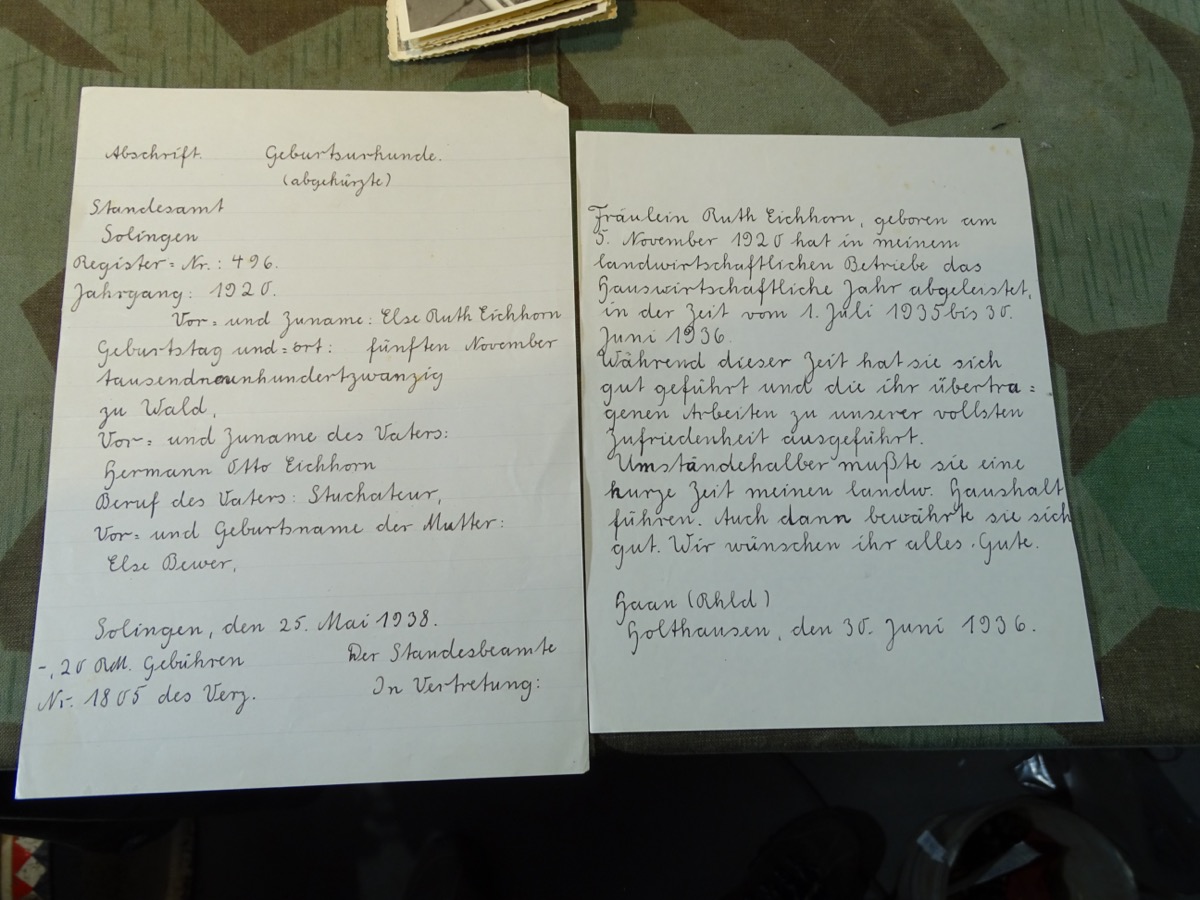 Abschrift. Geburtsurkunde.
(abgekürzte)
Standesamt
Solingen
Register=Nr.: 496.
Jahrgang: 1920.
Vor= und Zuname: Else Ruth Eichhorn
Geburtstag und=ort: fünften November
tausendneunhundertzwanzig
zu Wald,
Vor= und Zuname des Vaters:
Hermann Otto Eichhorn
Beruf des Vaters: Stuckateur,
Vor= und Geburtsname der Mutter:
Else Bewer,
Solingen, den 25. Mai 1938.
-,20 RM. Gebühren Der Standesbeamte
Nr. 1805 des Verz. In Vertretung:
Fräulein Ruth Eichhorn, geboren am
5. November 1920 hat in meinem
landwirtschaftlichen Betriebe das
Hauswirtschaftliche Jahr abgeleistet,
in der Zeit vom 1. Juli 1935 bis 30.
Juni 1936.
Während dieser Zeit hat sie sich
gut geführt und die ihr übertra=
genen Arbeiten zu unserer vollsten
Zufriedenheit ausgeführt.
Umständehalber mußte sie eine
kurze Zeit meinen landw. Haushalt
führen. Auch dann bewährte sie sich
gut. Wir wünschen ihr alles Gute.
Haan (Rhld)
Holthausen, den 30. Juni 1936.